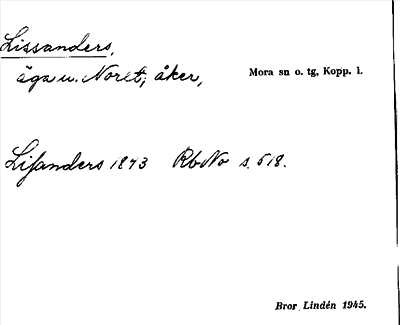 Lissanders,
äga u. Noret; åker,
Mora sn o. tg, Kopp. l.
Lisanders 1843 RbNo s. 518.
Bror Lindén 1945.